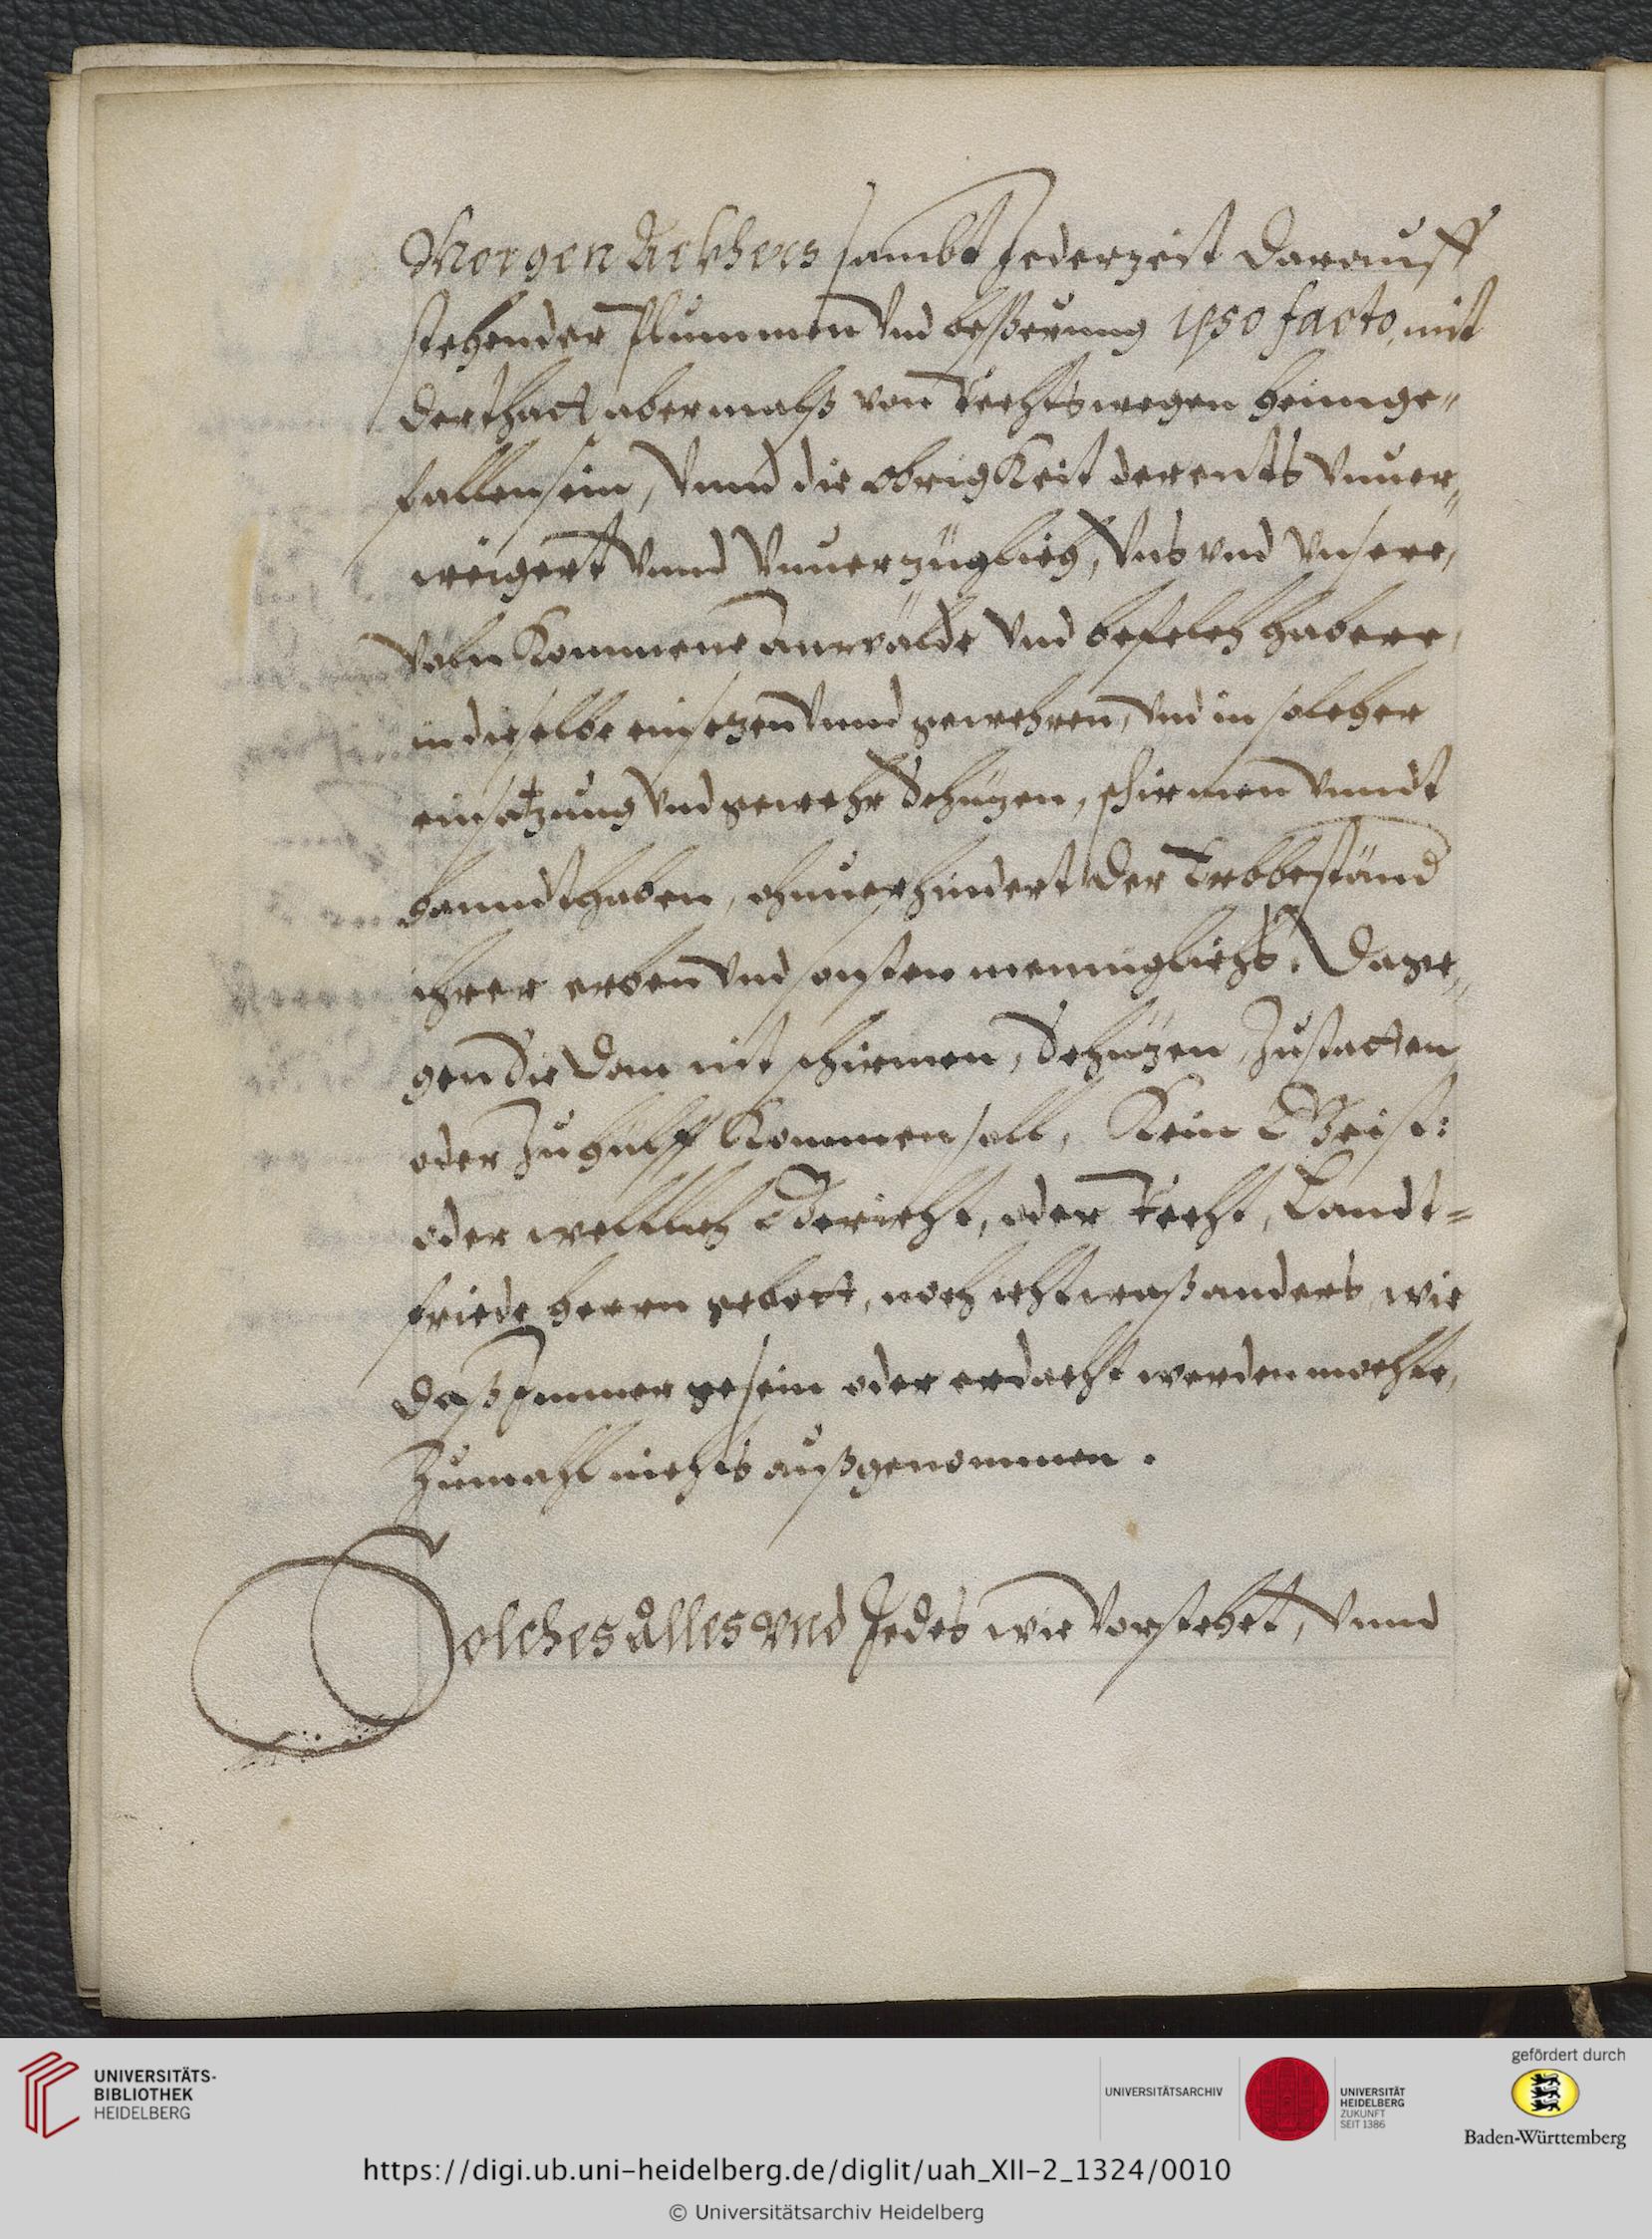 Morgen Ackhers sambt Jederzeit darauff
stehender plummen vnd beßerung ipso facto, mit
der thatt abermalß von Rechts wegen heimge„
fallen sein, Vnnd die Obrigkeit der ends Vnuer„
weigert Vnnd Vnuerzüglich, Vns vnd Vnsere,
Volnkommene anwälde Vnd befelch habere,
in dieselbe einsezen Vnnd gewehren, Vnd in solcher
einsatzung Vnd gewehr Schüzen, schirmen vnndt
hanndthaben, ohnuerhindert der Erbbeständ
ihrer erben Vnd sonsten menniglichs. Dage„
gen Sie dan nit schirmen, Schüzen, Zustatten
oder Zu hülff Kommen soll, Kein Geist:
oder weltlich Gericht, oder Recht, Landt=
friede, herrn gebott, noch ichtwaß anders, wie
daß Immer gesein oder erdacht werden mochte,
Zumahl nichts außgenommen.
Solches Alles Vnd Jedes wie Vorstehet, Vnnd
UNIVERSITÄTS-
BIBLIOTHEK
HEIDELBERG
UNIVERSITÄTSARCHIV
UNIVERSITÄT
HEIDELBERG
ZUKUNFT
SEIT 1386
gefördert durch
Baden-Württemberg
https://digi.ub.uni-heidelberg.de/diglit/uah_XII-2_1324/0010
© Universitätsarchiv Heidelberg